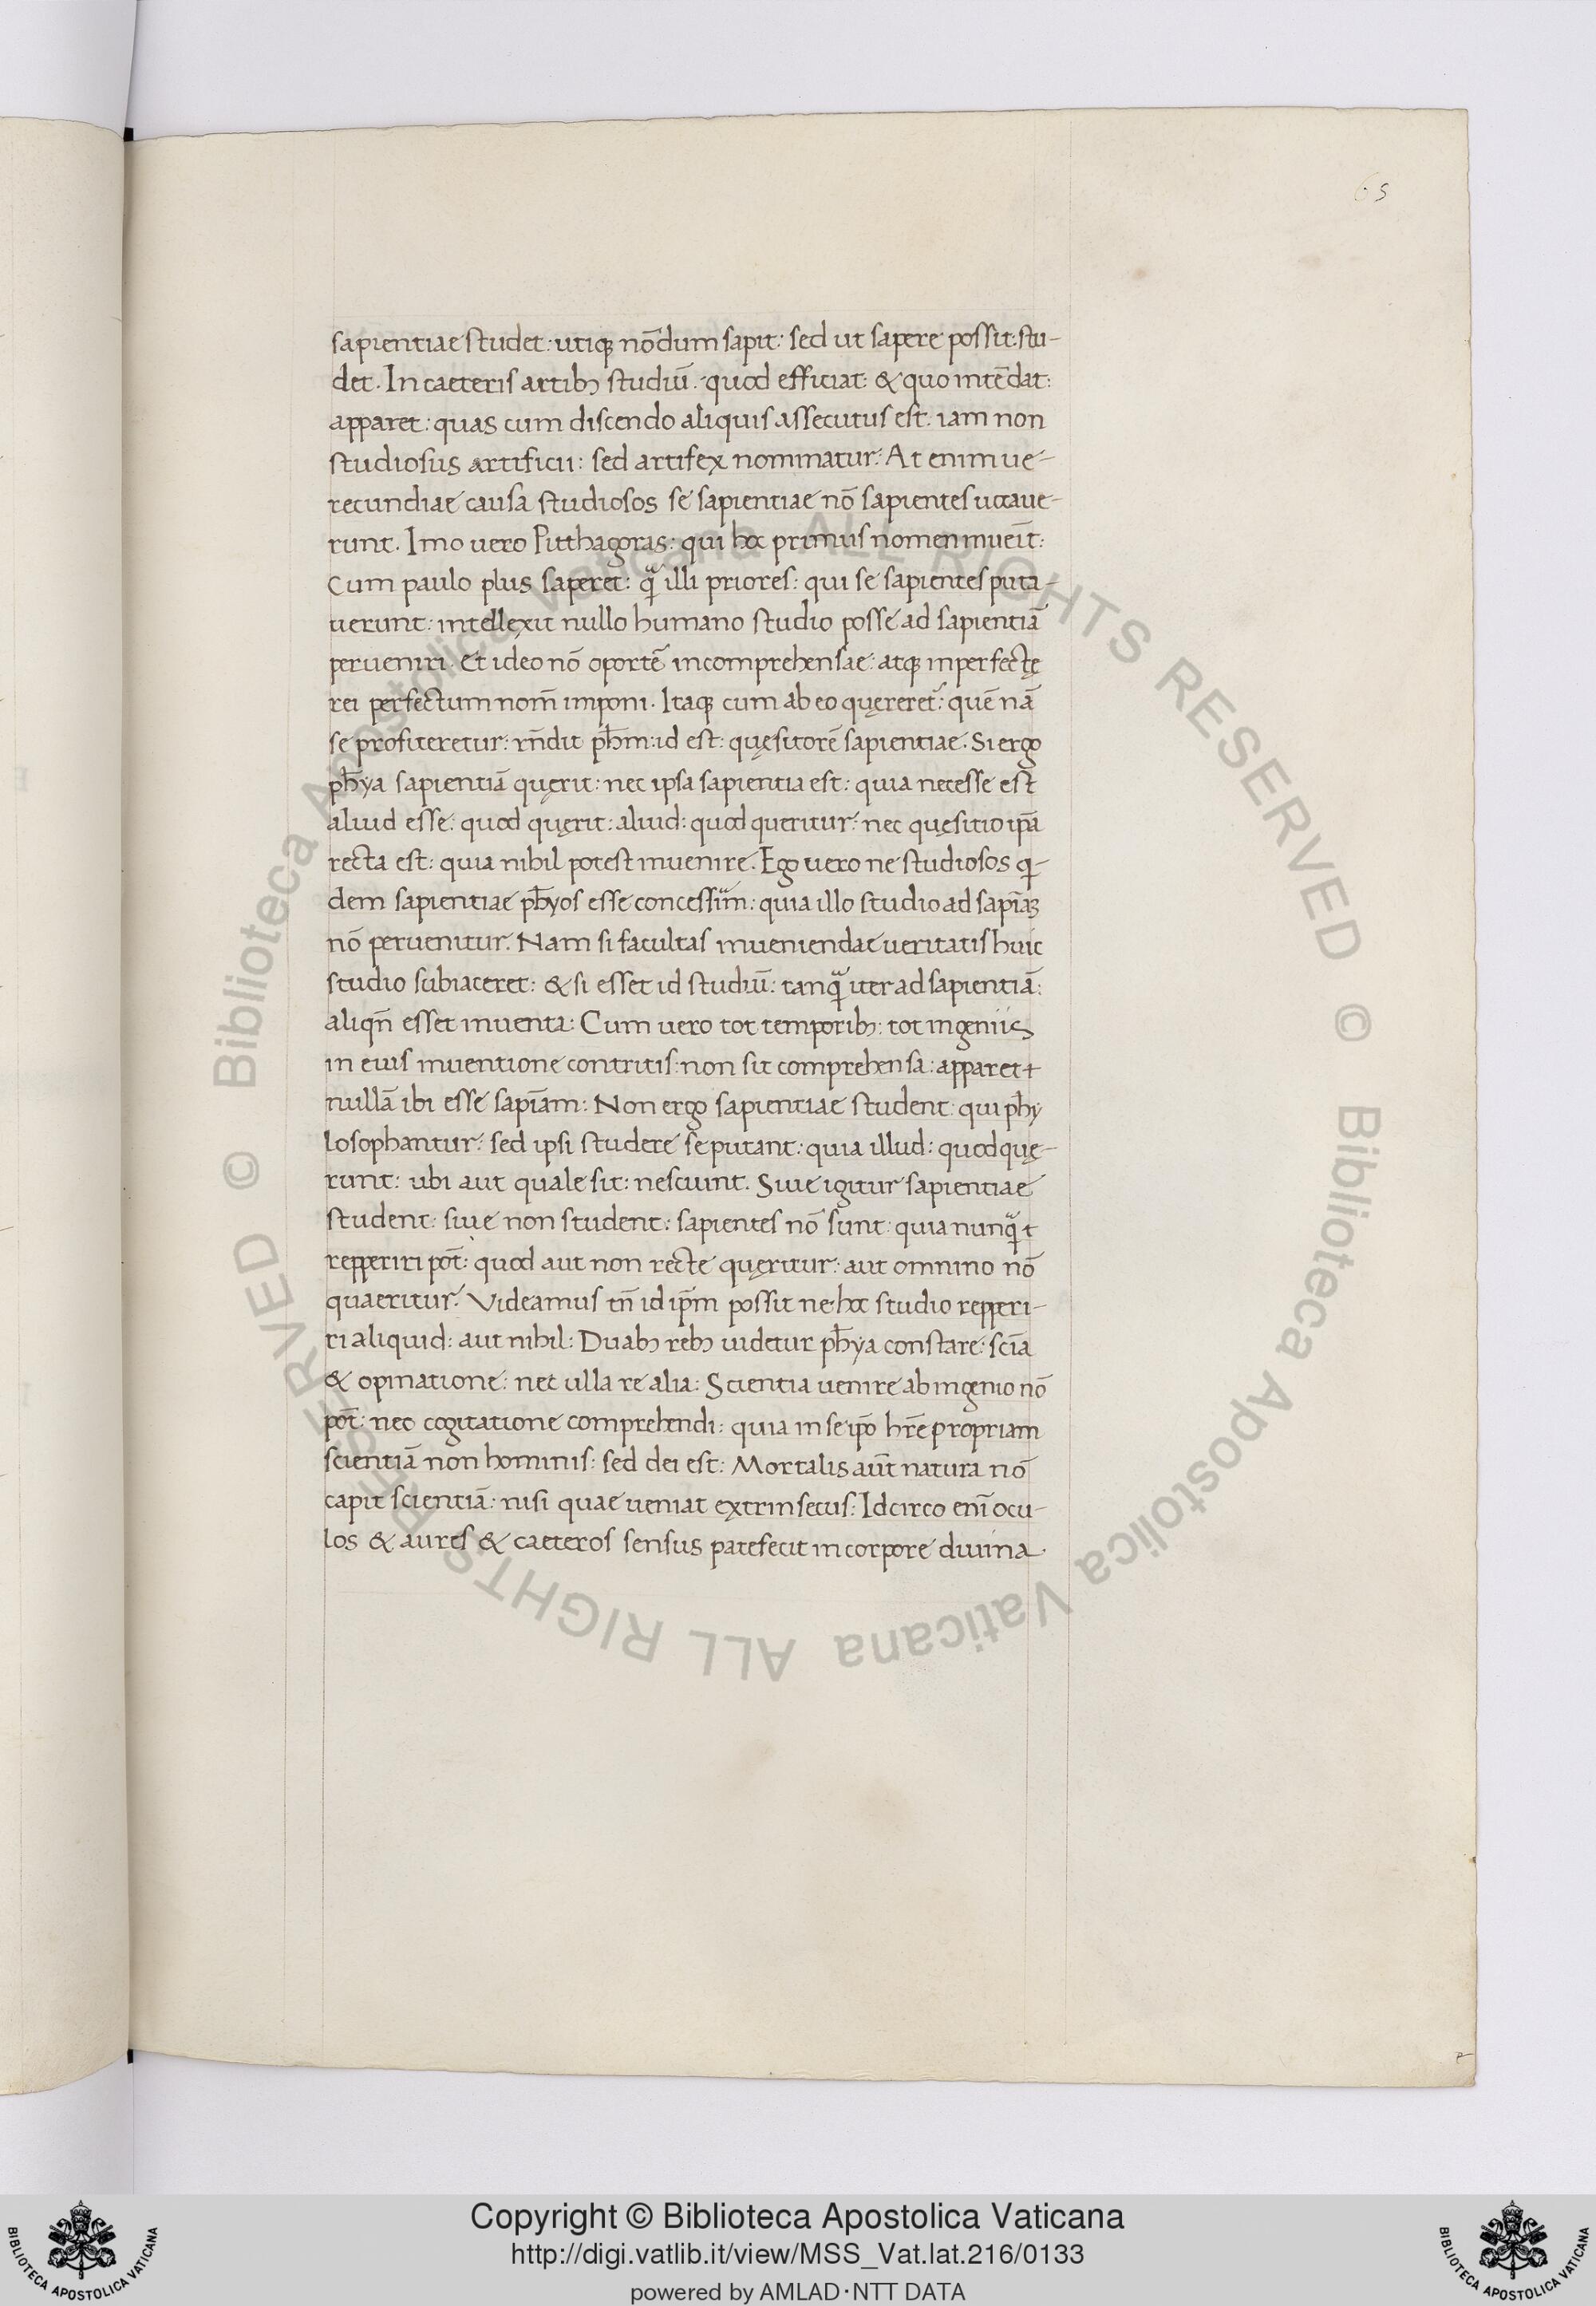 65
sapientiae studet: utiqꝫ nōdum sapit: sed ut sapere possit: stu-
det. In caeteris artibꝫ studiū. quod efficiat: & quo intēdat:
apparet: quas cum discendo aliquis assecutus est. iam non
studiosus artificii: sed artifex nominatur. At enim ue-
recundiae causa studiosos se sapientiae nō sapientes uocaue-
runt. Imo uero Pitthagoras: qui hoc primus nomen inueīt:
Cum paulo plus saperet: qᷓ illi priores: qui se sapientes puta-
uerunt: intellexit nullo humano studio posse ad sapientiā
perueniri. Et ideo nō oportē incomprehensae: atqꝫ inperfectę
rei perfectum nom̄ imponi. Itaqꝫ cum ab eo quęreret̄: quē nā
se profiteretur: rn̄dit ph̄m: id est: quęsitorē sapientiae. Si ergo
ph̄ya sapientiā quęrit: nec ipsa sapientia est: quia necesse est
aliud esse: quod quęrit: aliud: quod queritur: nec quęsitio ip̄a
recta est: quia nihil potest inuenire. Ego uero ne studiosos q-
dem sapientiae ph̄yos esse concessim̄: quia illo studio ad sapīaꝫ
nō peruenitur. Nam si facultas inueniendae ueritatis huic
studio subiaceret: & si esset id studiū: tanqᷓ iter ad sapientiā:
aliqn̄ esset inuenta: Cum uero tot temporibꝫ: tot ingeniis
in eius inuentione contritis: non sit comprehensa: apparet
nullā ibi esse sapīam: Non ergo sapientiae student: qui phy
losophantur: sed ipsi studere se putant: quia illud: quod quę-
runt: ubi aut quale sit: nesciunt. Siue igitur sapientiae
student: siue non student: sapientes nō sunt: quia nunqᷓ
repperiri pōt: quod aut non recte quęritur: aut omnino nō
quaeritur. Videamus tn̄ id ip̄m possit ne hoc studio repperi-
ri aliquid: aut nihil: Duabꝫ rebꝫ uidetur ph̄ya constare: scīa
& opinatione: nec ulla re alia: Scientia uenire ab ingenio nō
pōt: nec cogitatione comprehendi: quia in se ip̄o hr̄e propriam
scientiā non hominis: sed dei est: Mortalis aūt natura nō
capit scientiā: nisi quae ueniat extrinsecus: Idcirco enī ocu-
los & aures & caeteros sensus patefecit in corpore diuina
© Biblioteca Apostolica Vaticana ALL RIGHTS RESERVED © Biblioteca Apostolica Vaticana ALL RIGHTS RESERVED
Copyright © Biblioteca Apostolica Vaticana
http://digi.vatlib.it/view/MSS_Vat.lat.216/0133
powered by AMLAD·NTT DATA
BIBLIOTECA APOSTOLICA VATICANA
BIBLIOTECA APOSTOLICA VATICANA